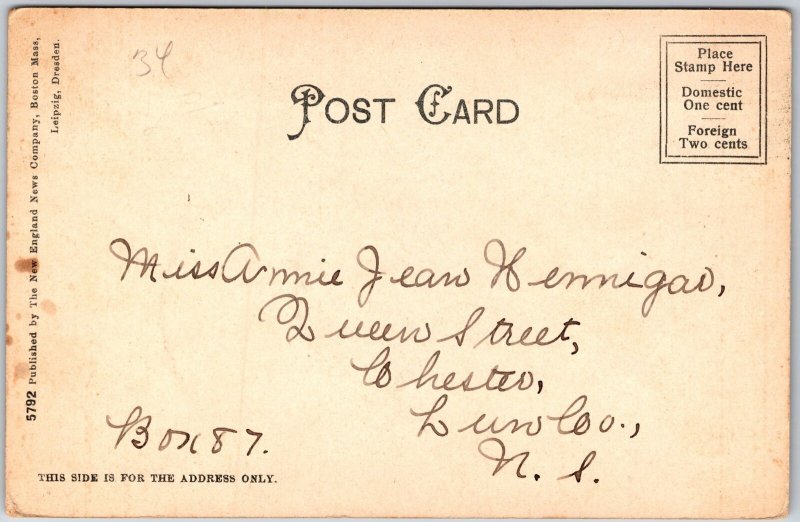 34
POST CARD
Place
Stamp Here
Domestic
One cent
Foreign
Two cents
5792 Published by The New England News Company, Boston Mass,
Leipzig, Dresden.
Miss Annie Jean Hennigar,
Queen Street,
Chester,
Lun Co.,
Box 87.
N. S.
THIS SIDE IS FOR THE ADDRESS ONLY.